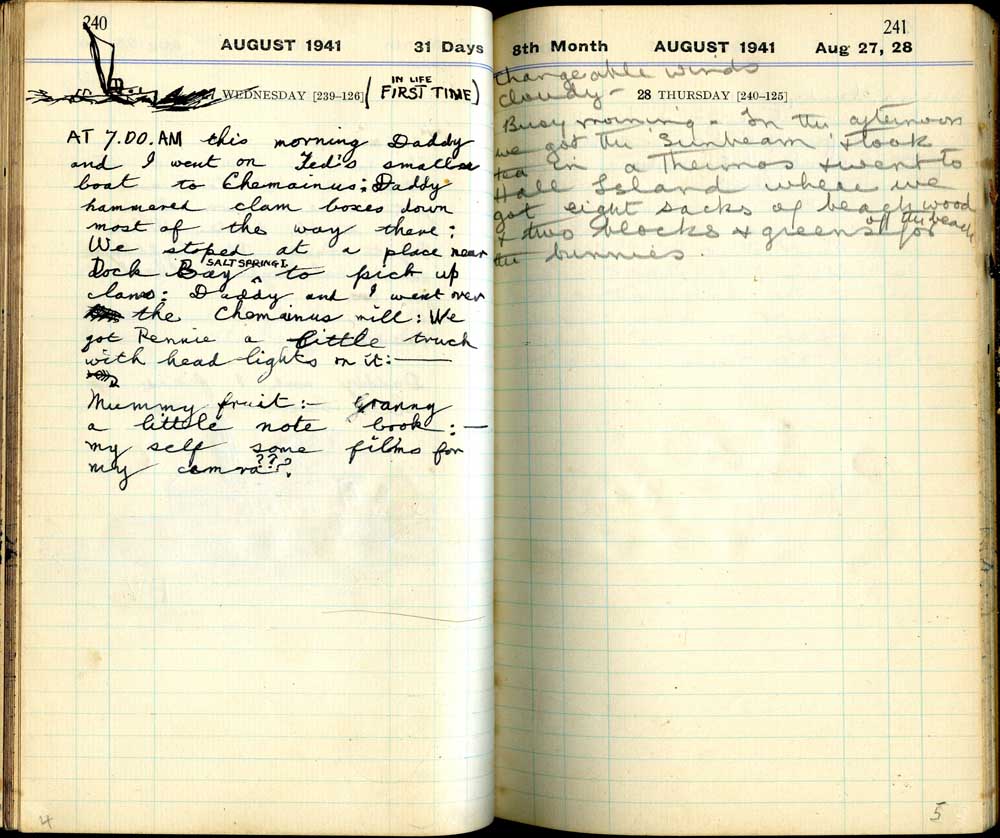 240
AUGUST 1941 31 Days
WEDNESDAY [239-126] (IN LIFE FIRST TIME)
AT 7.00.AM this morning Daddy
and I went on Ted's small
boat to Chemainus; Daddy
hammered clam boxes down
most of the way there:
We stoped at a place near
Dock Bay SALT SPRING I. to pick up
clams: Daddy and I went over
the Chemainus mill: We
got Rennie a little truck
with head lights on it:—
Mummy fruit:- Granny
a little note book:—
my self some films for
my camra???
4
241
8th Month AUGUST 1941 Aug 27, 28
changeable winds
cloudy -
28 THURSDAY [240-125]
Busy morning - In the afternoon
we got the Sunbeam & took
tea in a Thermos & went to
Hall Island where we
got eight sacks of beachwood
off the beach
& two blocks & greens for
the bunnies
5